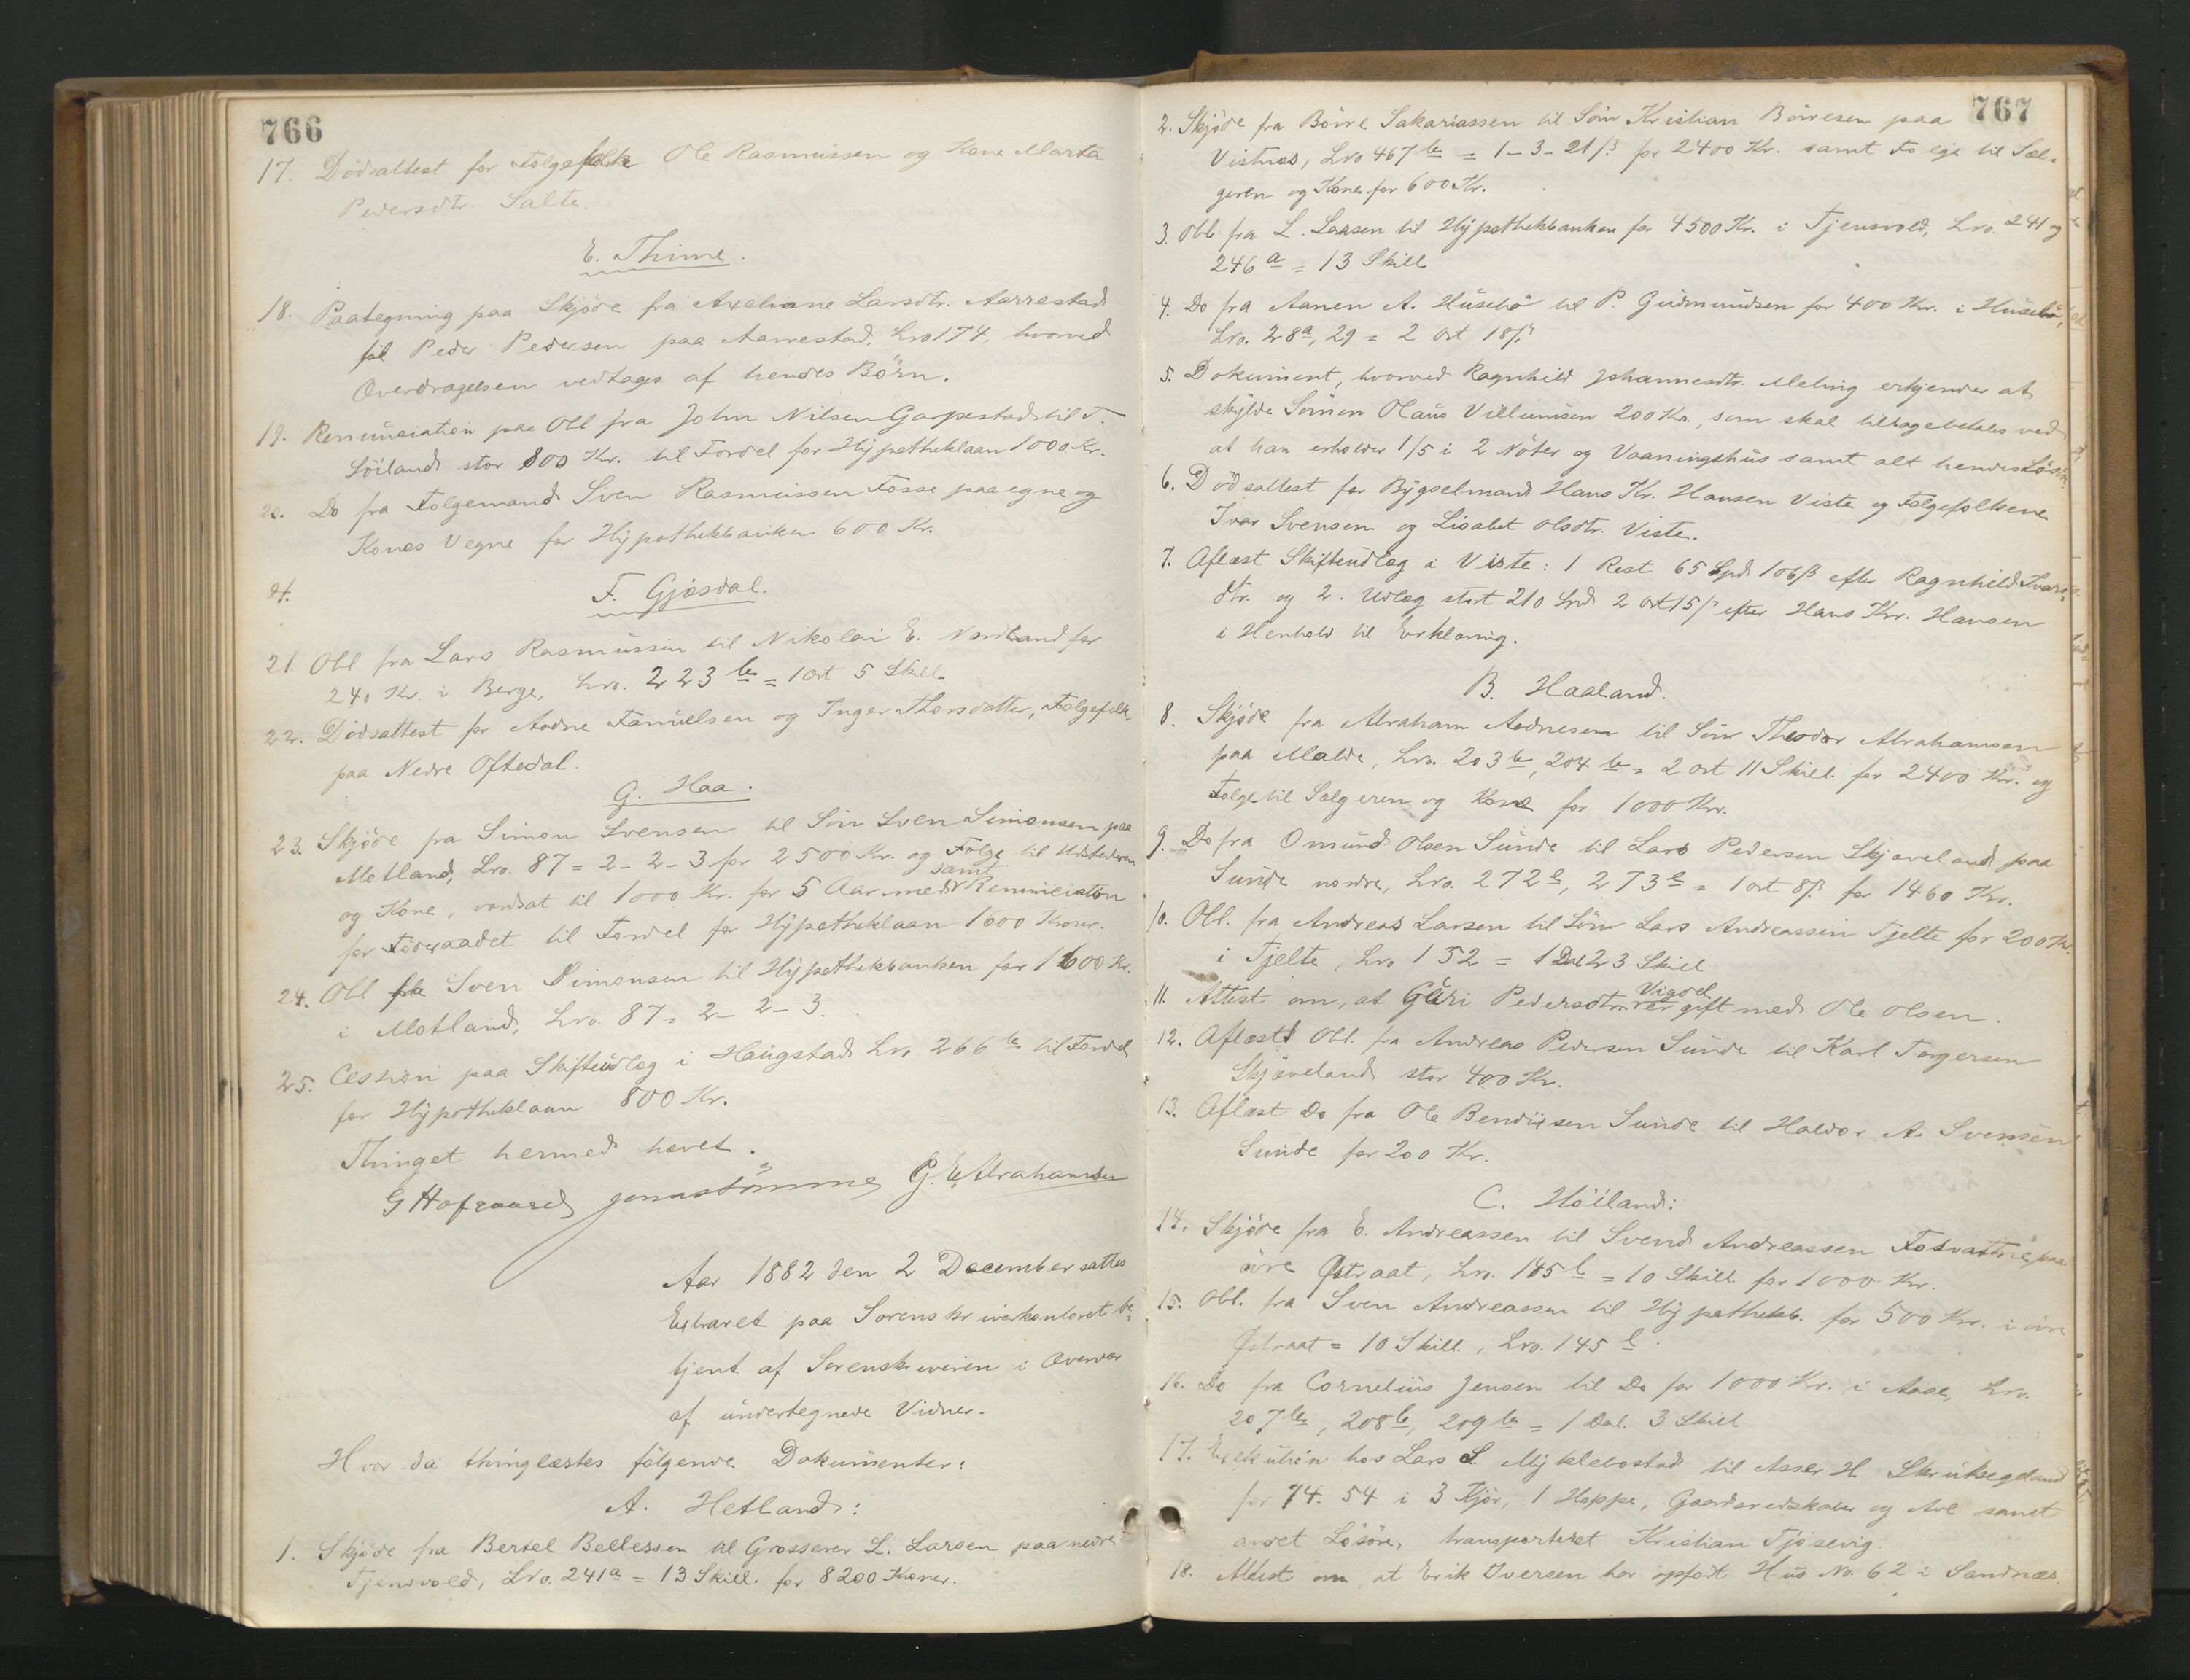 766
17. Dödsattest for Følgefolk Ole Rasmussen og Kone Marta
Pedersdtr. Salte.
E. Thime.
18. Paategning paa Skjöde fra Axeliane Larsdtr. Aarrestad
til Peder Pedersen paa Aarrestad, Lro 174, hvorved
Overdragelsen vedtages af hendes Börn.
19. Renunciation paa Obl fra John Nilsen Garpestad til T.
Löiland stor 800 Kr. til Fordel for Hypotheklaan 1000 Kr.
20. Do fra Følgemand Sven Rasmussen Fosse paa egne og
Kones Vegne for Hypothekbanken 600 Kr.
F. Gjæsdal.
21. Obl fra Lars Rasmussen til Nikolai E. Nordland for
240 Kr. i Berge, Lro. 223 b = 1 ort 5 Skill.
22. Dödsattest for Aadne Samuelsen og Inger Thorsdatter, Følgefolk
paa Nedre Oftedal.
G. Haa.
23. Skjöde fra Simon Svensen til Sön Sven Simonsen paa
Motland, Lro. 87 = 2-2-3 for 2500 Kr. og Følge til Udstederen
og Kone, værdsat til 1000 Kr. for 5 Aar samt med Renunciation
for Föderaadet til Fordel for Hypotheklaan 1600 Kroner.
24. Obl fra Sven Simonsen til Hypothekbanken for 1600 Kr.
i Motland, Lro. 87 = 2-2-3.
25. Cession paa Skifteudlæg i Haugstad Lro 266 b til Fordel
for Hypotheklaan 800 Kr.
Thinget hermed hævet.
G Hofgaard G. E. Abrahamsen
Aar 1882 den 2 December sattes
Extraret paa Sorenskriverkontoret be-
tjent af Sorenskriveren i Overvær
af undertegnede Vidner.
Hvor da thinglæstes fölgende Dokumenter:
A. Hetland:
1. Skjöde fra Bertel Bellessen til Grosserer L. Larsen paa nedre
Tjensvold, Lro. 241a = 13 Skill. for 8200 Kroner.
767
2. Skjöde fra Börre Sakariassen til Sön Kristian Börresen paa
Vistnes, Lro 467 b = 1-3-21 ß for 2400 Kr. samt Følge til Sæl-
geren og Kone for 600 Kr.
3. Obl fra L. Larsen til Hypothekbanken for 4500 Kr. i Tjensvold, Lro. 241 og
246 a = 13 Skill
4. Do fra Aanen A. Husebö til P. Gudmundsen for 400 Kr. i Husebö,
Lro. 28a, 29 = 2 ort 18 ß.
5. Dokument, hvorved Ragnhild Johannesdtr. Meling erkjender at
skylde Sönnen Olaus Villumsen 200 Kr., som skal tilbagebetales ved
at han erholder 1/5 i 2 Nöter og Vaaningshus samt alt hendes Lösöre.
6. Dödsattest for Bygselmand Hans Kr. Hansen Viste og Følgefolkene
Ivar Svensen og Lisabet Olsdtr. Viste.
7. Aflæst Skifteudlæg i Viste: 1 Rest 65 Spd 106 ß efter Ragnhild Ivars-
dtr. og 2. Udlæg stort 210 Spd 2 ort 15 ß efter Hans Kr. Hansen
i Henhold til Erklæring.
B. Haaland.
8. Skjöde fra Abraham Aadnesen til Sön Theodor Abrahamsen
paa Malde, Lro. 203 b, 204 b = 2 ort 11 Skill. for 2400 Kr. og
Følge til Sælgeren og Kone for 1000 Kr.
9. Do fra Omund Olsen Sunde til Lars Pedersen Skjæveland paa
Sunde nordre, Lro. 272 e, 273 e = 1 ort 8 ß for 1460 Kr.
10. Obl. fra Andreas Larsen til Sön Lars Andreassen Tjelte for 200 Kr.
i Tjelte, Lro 152 = 1 Dal 23 Skill
11. Attest om, at Guri Pedersdtr. Vigdel er gift med Ole Olsen.
12. Aflæst Obl. fra Andreas Pedersen Sunde til Karl Torgersen
Skjæveland stor 400 Kr.
13. Aflæst Do fra Ole Bendixsen Sunde til Haldor A. Svensen
Sunde for 200 Kr.
C. Höiland:
14. Skjöde fra E. Andreassen til Svend Andreassen Fosvatne paa
övre Østraat, Lro. 145 b = 10 Skill for 1000 Kr.
15. Obl. fra Sven Andreassen til Hypothekb. for 500 Kr. i övre
Østraat = 10 Skill, Lro. 145 b.
16. Do fra Cornelius Jensen til Do for 1000 Kr. i Aase, Lro.
207 b, 208 b, 209 b = 1 Dal. 3 Skill
17. Exekution hos Lars L Myklebostad til Asser H. Skruksegeland
for 74.54 i 3 Kjör, 1 Hoppe, Gaardsredskaber og Avl samt
andet Lösöre, transporteret Kristian Tjösevig.
18. Attest om at Erik Iversen har opfört Hus No. 62 i Sandnæs.